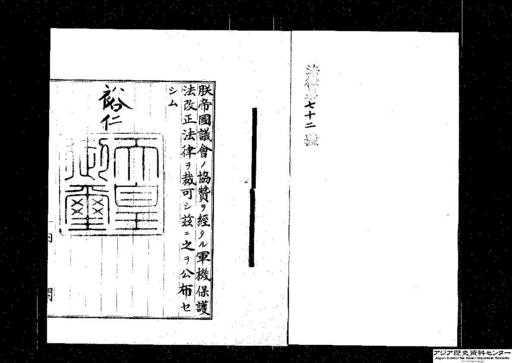 法律第七十二號
朕帝國議會ノ協贊ヲ經タル軍機保護
法改正法律ヲ裁可シ茲ニ之ヲ公布セ
シム
裕仁
天皇
御璽
内閣
アジア歴史資料センター
Japan Center for Asian Historical Records